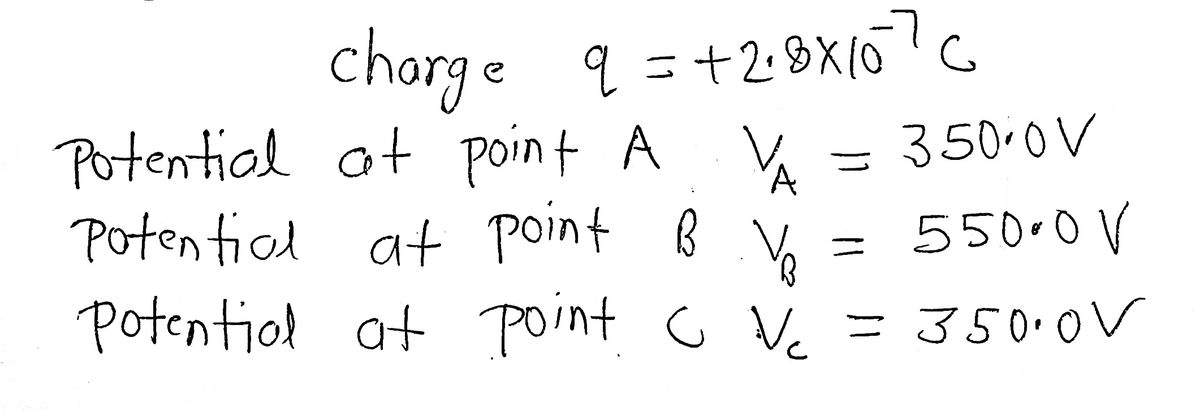 charge q = +2.8X10⁻⁷ C
Potential at point A V_A = 350.0V
Potential at point B V_B = 550.0 V
Potential at point C V_C = 350.0V